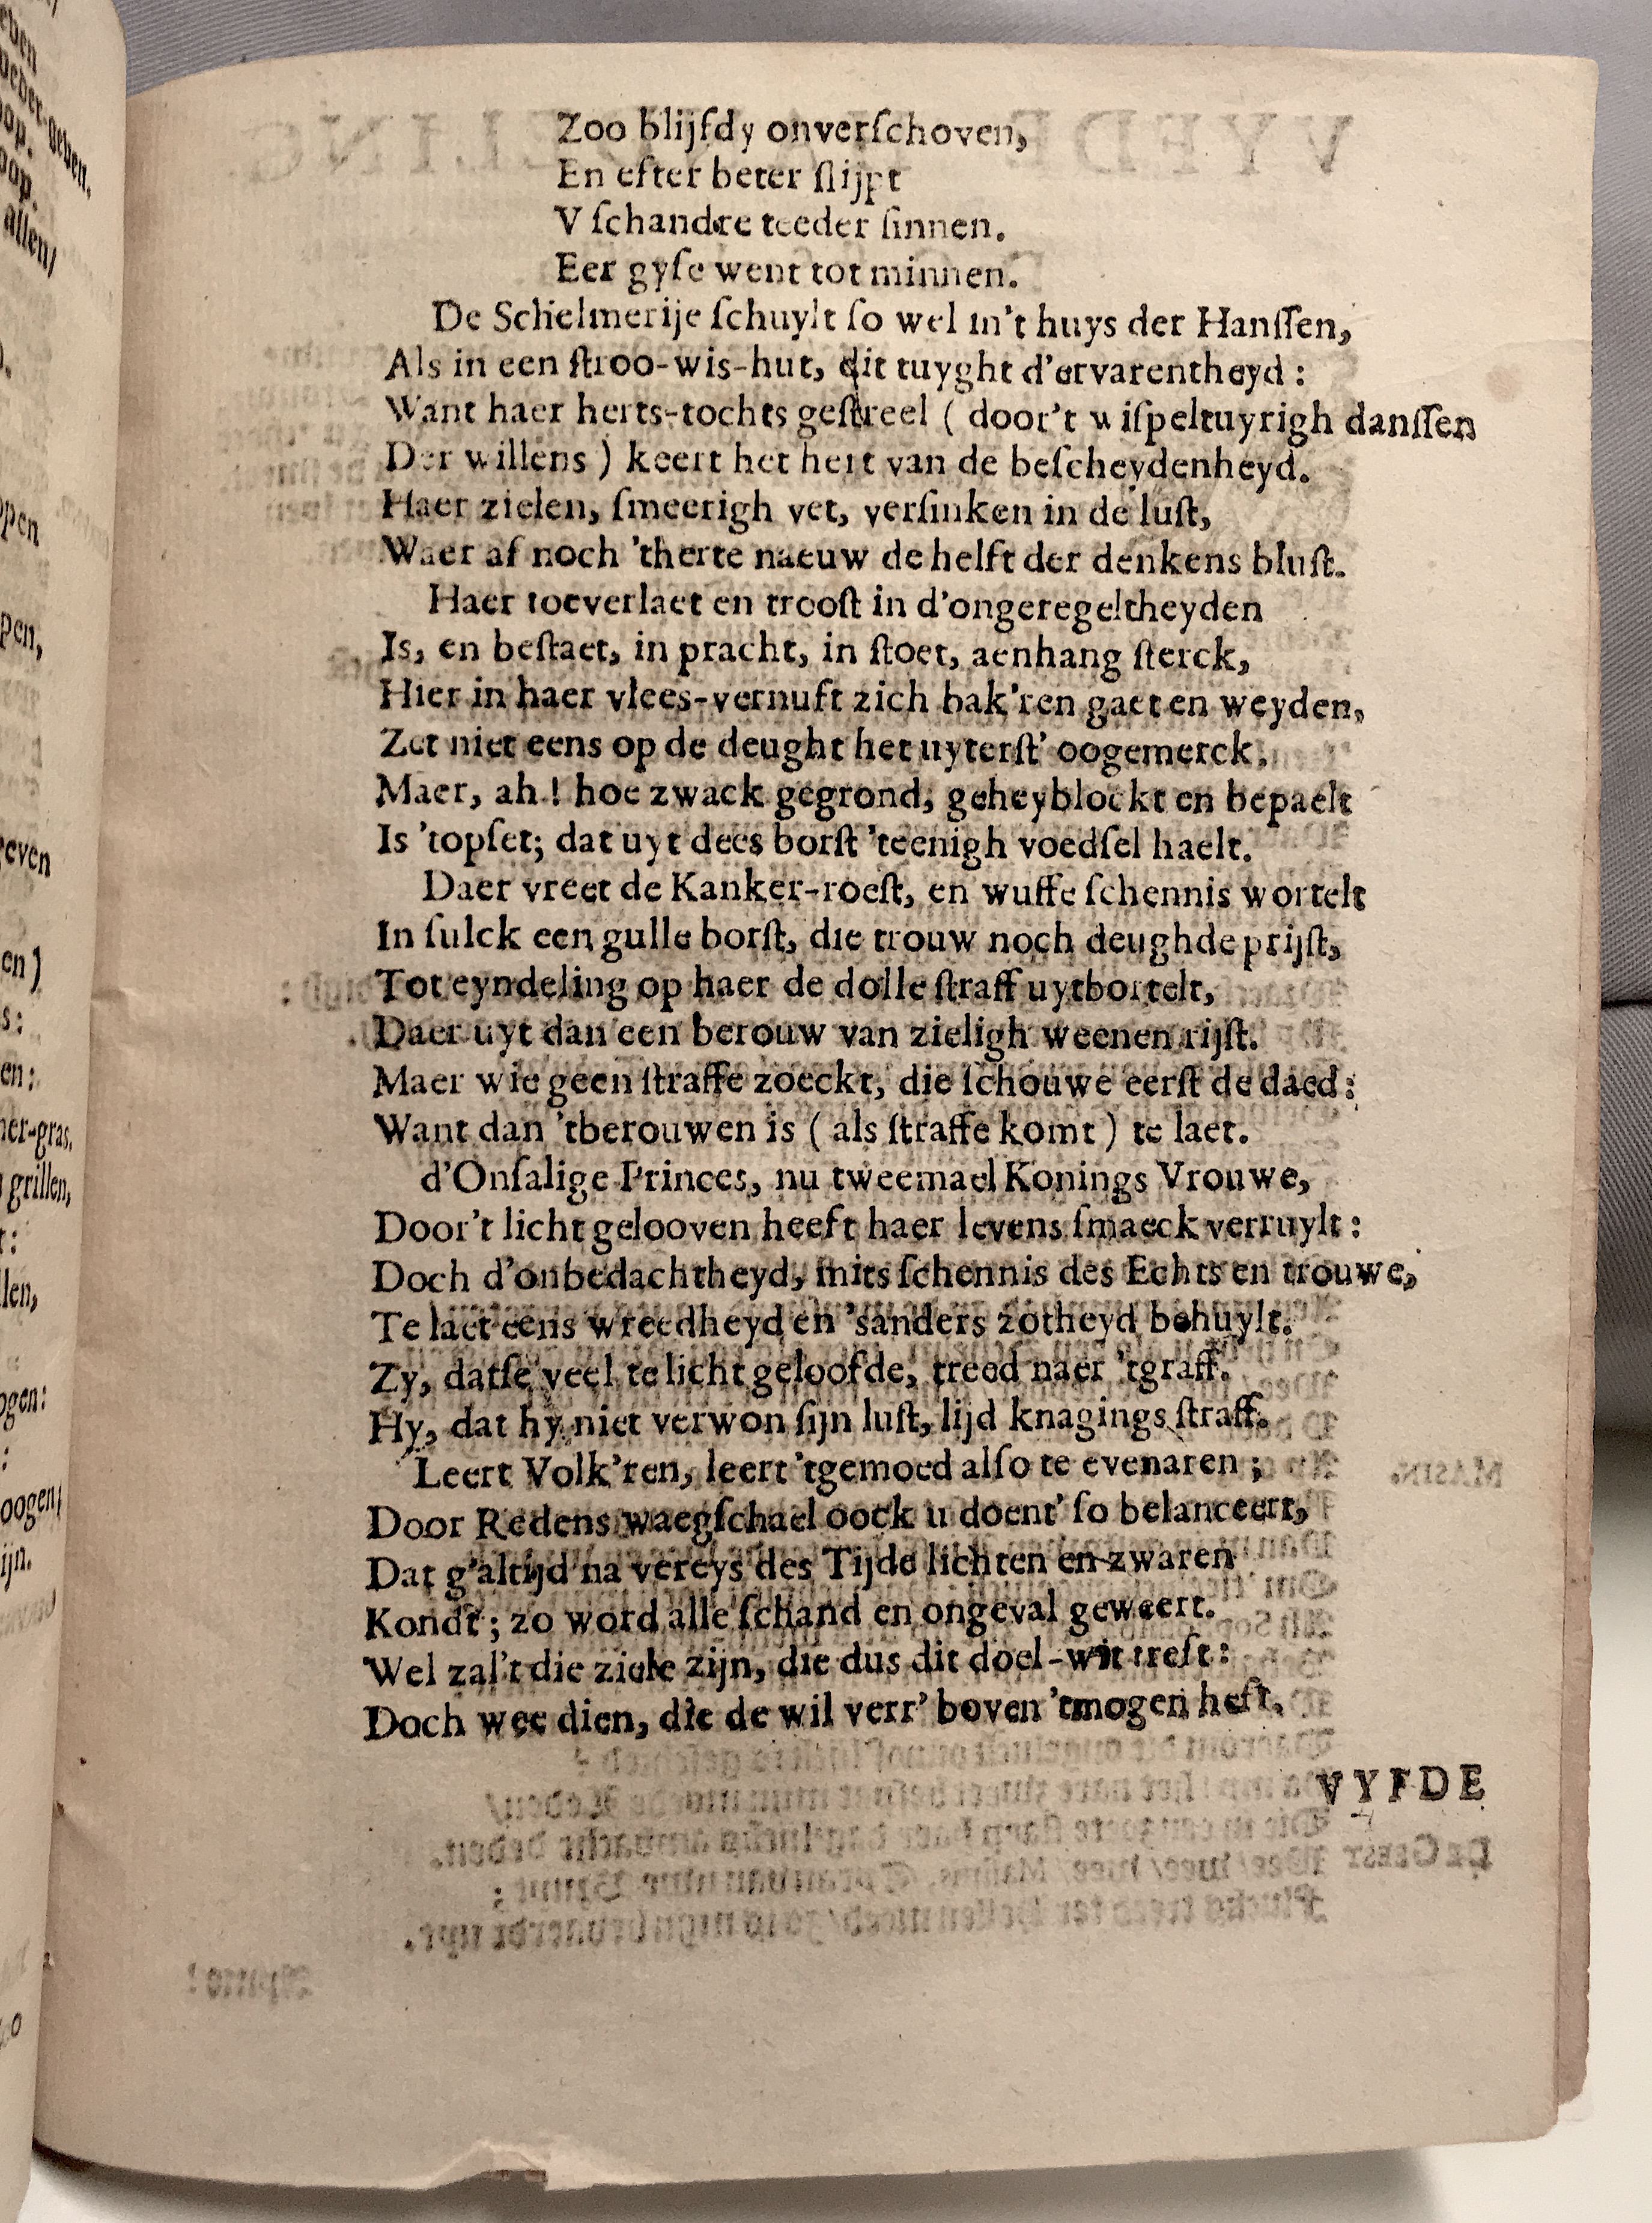 Zoo blijfdy onverſchoven,
En efter beter ſlijpt
V ſchandre teeder ſinnen.
Eer gyſe went tot minnen.
De Schelmerije ſchuylt ſo wel in't huys der Hanſſen,
Als in een ſtroo-wis-hut, dit tuyght d'ervarentheyd:
Want haer herts-tochts geſtreel ( door't wiſpeltuyrigh danſſen
Der willens ) keert het hert van de beſcheydenheyd.
Haer zielen, ſmeerigh vet, verſinken in de luſt,
Waer af noch 'therte naeuw de helft der denkens bluſt.
Haer toeverlaet en trooſt in d'ongeregeltheyden
Is, en beſtaet, in pracht, in ſtoet, aenhang ſterck,
Hier in haer vlees-vernuft zich bak'ren gaet en weyden,
Zet niet eens op de deught het uyterſt' oogemerck.
Maer, ah! hoe zwack gegrond, geheyblockt en bepaelt
Is 'topſet; dat uyt dees borſt 'teenigh voedſel haelt.
Daer vreet de Kanker-roeſt, en wuffe ſchennis wortelt
In ſulck een gulle borſt, die trouw noch deughde prijſt,
Tot eyndeling op haer de dolle ſtraff uytbortelt,
Daer uyt dan een berouw van zieligh weenen rijſt.
Maer wie geen ſtraffe zoeckt, die ſchouwe eerſt de daed:
Want dan 'tberouwen is ( als ſtraffe komt ) te laet.
d'Onſalige Princes, nu tweemael Konings Vrouwe,
Door't licht gelooven heeft haer levens ſmaeck verruylt:
Doch d'onbedachtheyd, mits ſchennis des Echts en trouwe,
Te laet eens wreedheyd en 'sanders zotheyd behuylt.
Zy, datſe veel te licht geloofde, treed naer 'tgraff.
Hy, dat hy niet verwon ſijn luſt, lijd knagings ſtraff.
Leert Volk'ren, leert 'tgemoed alſo te evenaren;
Door Redens waegſchael oock u doent' ſo belanceert,
Dat g'altijd na vereys des Tijds lichten en zwaren
Kondt; zo word alle ſchand en ongeval geweert.
Wel zal't die ziele zijn, die dus dit doel-wit treft:
Doch wee dien, die de wil verr' boven 'tmogen heft.
VYFDE